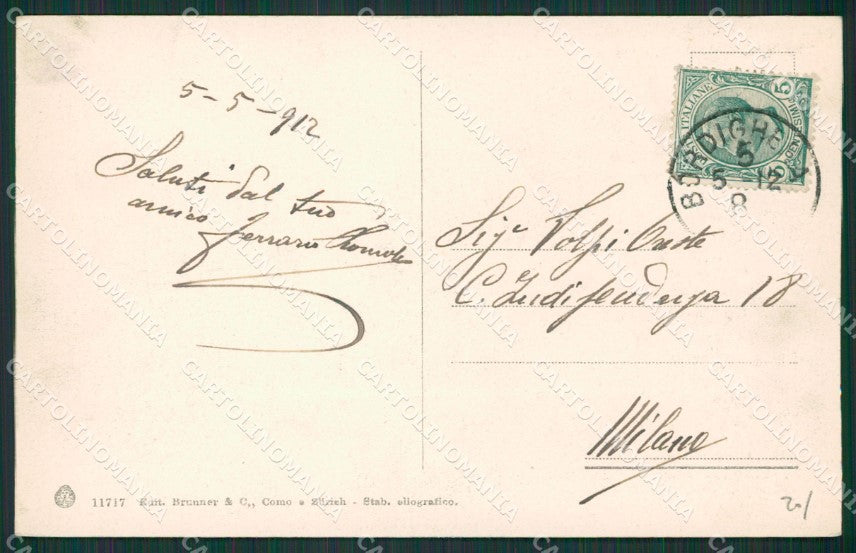 5-5-912
Saluti dal tuo
amico Ferrario
Sigr Volpi Oreste
C. Indipendenza 18
Milano
BORDIGHERA
5
5 12
POSTE ITALIANE
5
11717 Edit. Brunner & C., Como e Zürich - Stab. eliografico.
CARTOLINOMANIA